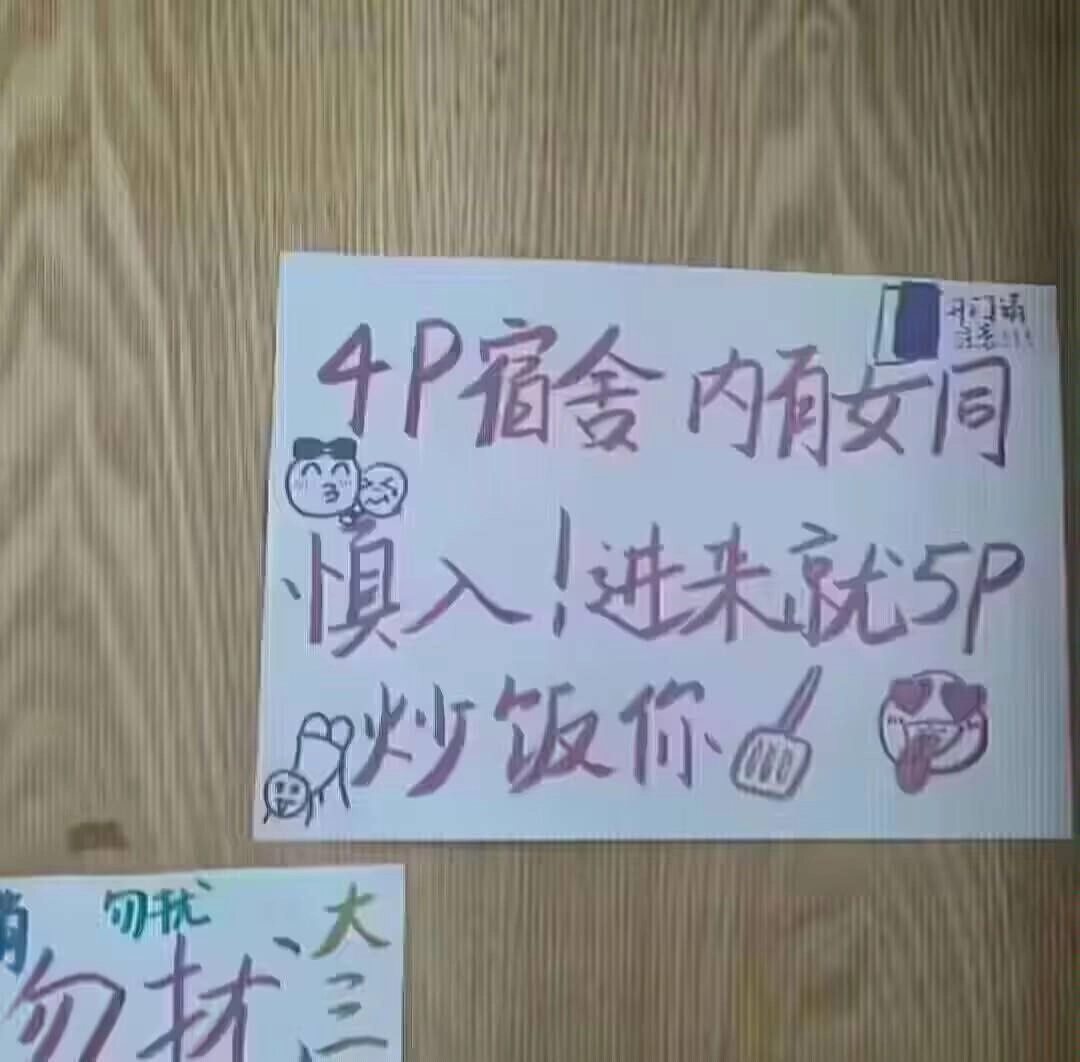 开门请
注意!!!
4P宿舍 内有女同
慎入!进来就5P
炒饭你
勿扰
大三
勿扰